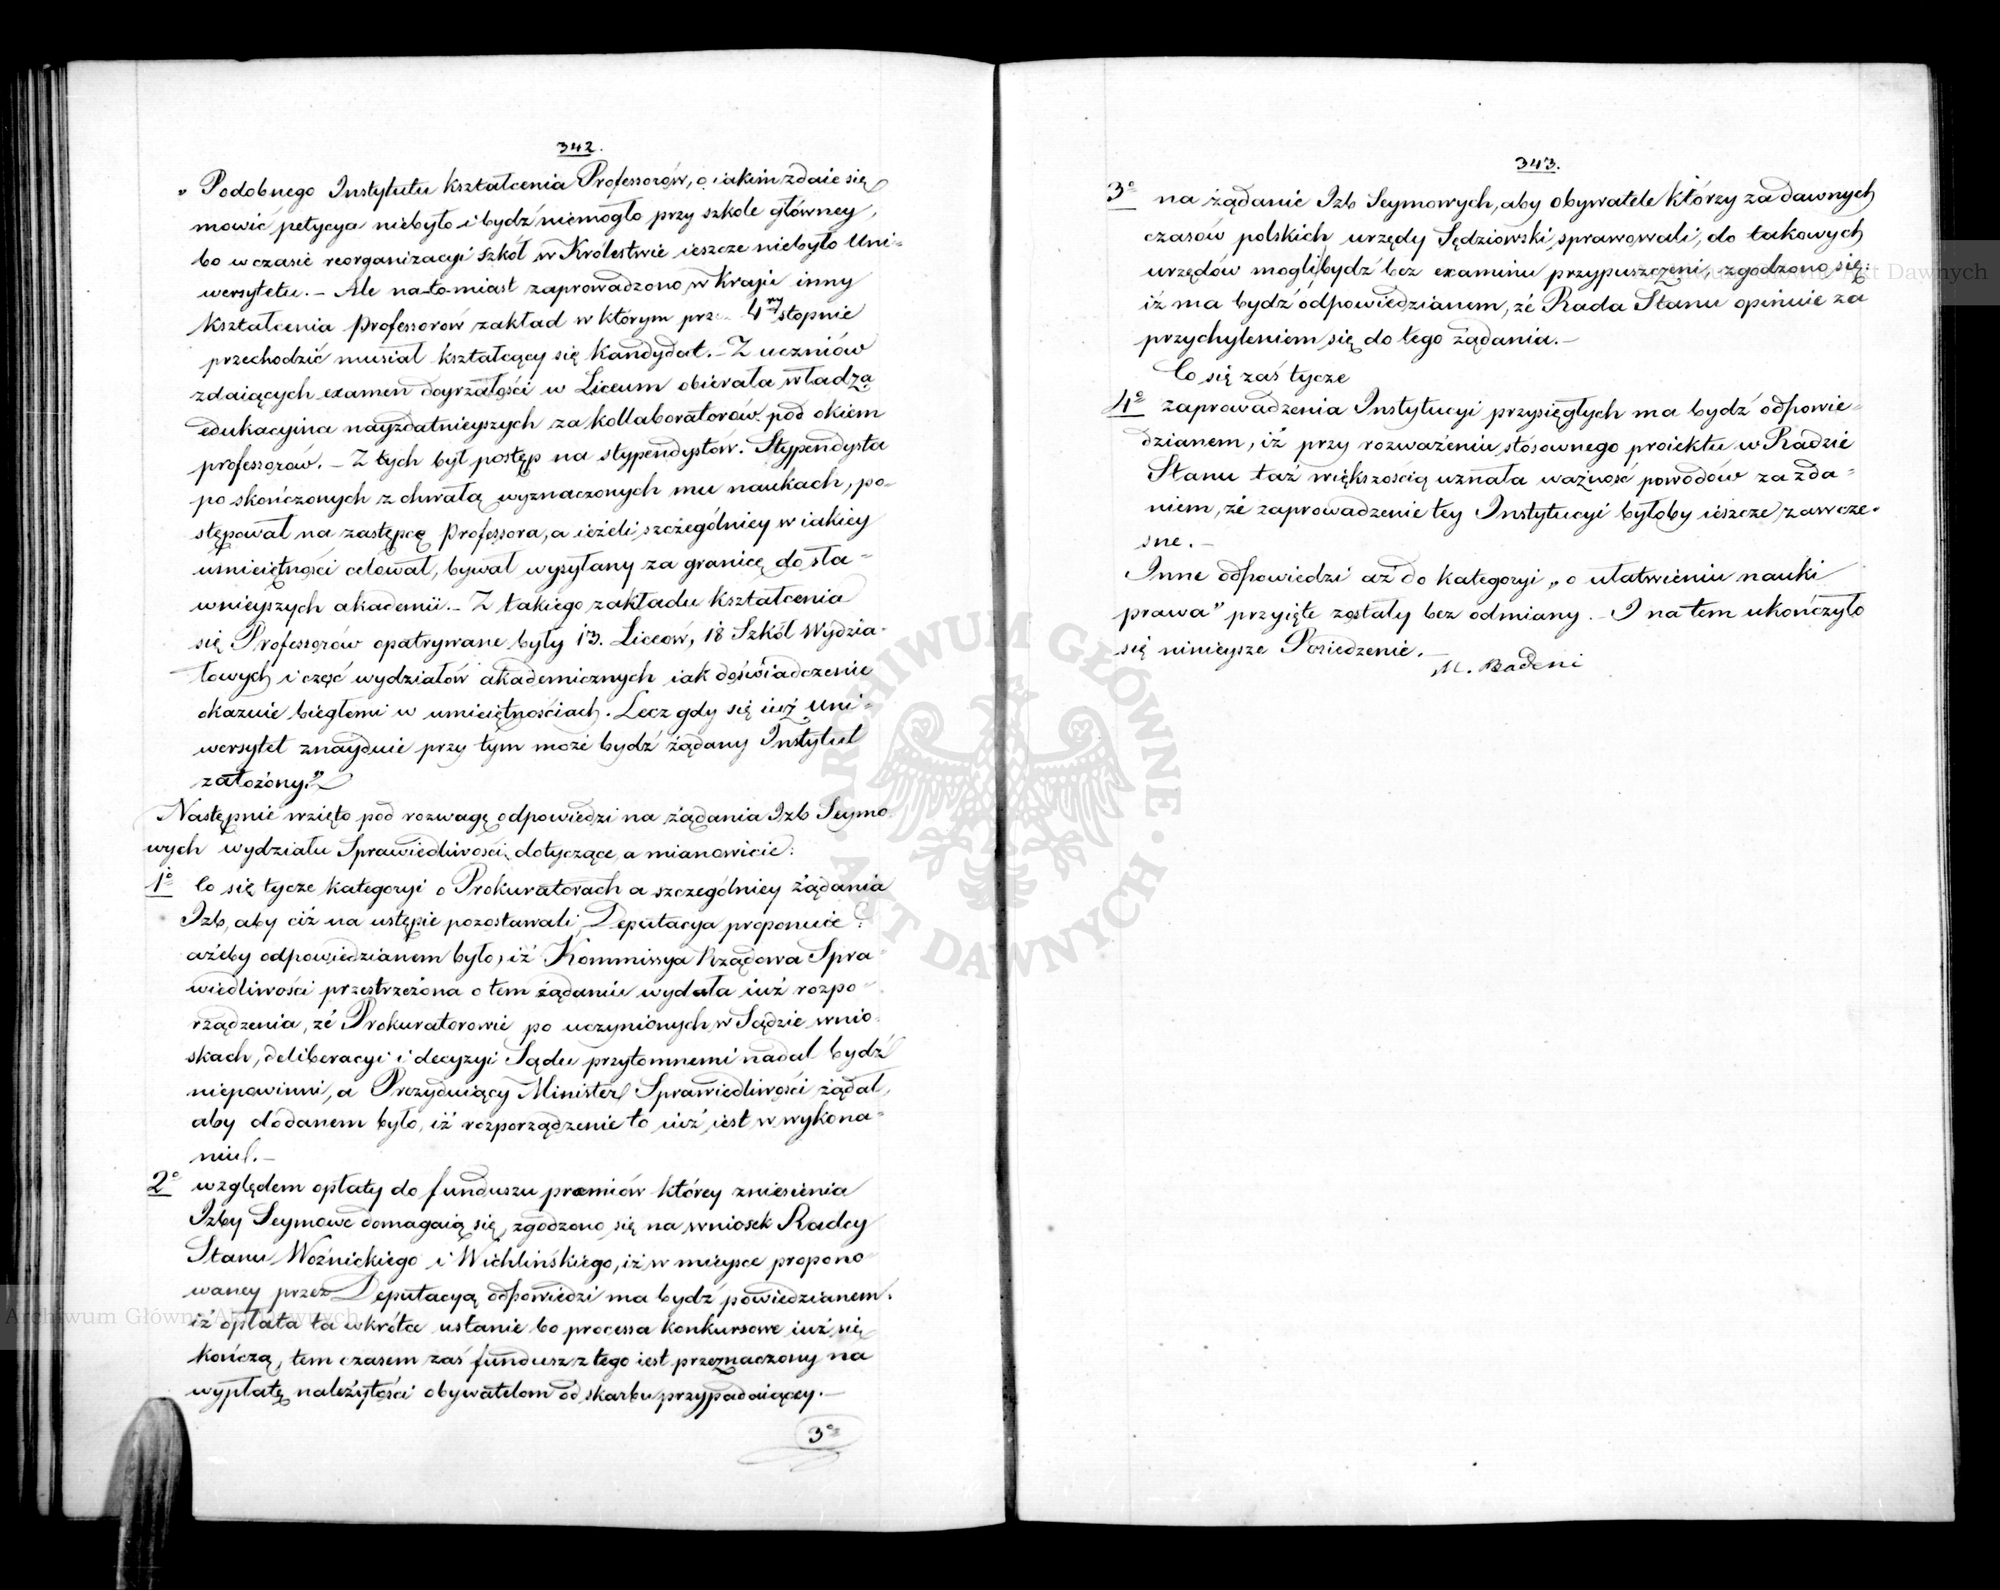 342.
„ Podobnego Instytutu kształcenia Professorów, o iakim zdaie się
mowić petycya niebyło i bydź niemogło przy szkole główney,
bo w czasie reorganizacyi szkół w Królestwie ieszcze niebyło Uni-
wersytetu. – Ale na-to-miast zaprowadzono w Kraju inny
kształcenia Professorów zakład w którym przez 4ry stopnie
przechodzić musiał kształcący się Kandydat. – Z uczniów
zdaiących examen doyrzałości w Liceum obierała władza
edukacyina nayzdatnieyszych za kollaboratorów pod okiem
professorów. – Z tych był postęp na stypendystów. Stypendysta
po skończonych z chwałą wyznaczonych mu naukach, po-
stępował na zastępcę Professora, a ieżeli szczególniey w iakiey
umieiętności celował, bywał wysyłany za granicę do sła-
wnieyszych akademii. – Z takiego zakładu kształcenia
się Professorów opatrywane były 13. Liceów, 18 Szkół Wydzia-
łowych i część wydziałów akademicznych iak doświadczenie
okazuie biegłemi w umieiętnościach. Lecz gdy się iuż Uni-
wersytet znayduie przy tym może bydź żądany Instytut
założony.”
Następnie wzięto pod rozwagę odpowiedzi na żądania Izb Seymo-
wych wydziału Sprawiedliwości dotyczące, a mianowicie:
1° Co się tycze kategoryi o Prokuratorach a szczególniey żądania
Izb, aby ciż na ustępie pozostawali, Deputacya proponuie:
ażeby odpowiedzianem było, iż Kommissya Rządowa Spra-
wiedliwości przestrzeżona o tem żądaniu wydała iuż rozpo-
rządzenia, że Prokuratorowie po uczynionych w Sądzie wnio-
skach, deliberacyi i decyzyi Sądu przytomnemi nadal bydź
niepowinni, a Prezyduiący Minister Sprawiedliwości żądał,
aby dodanem było, iż rozporządzenie to iuż iest w wykona-
niu. –
2° względem opłaty do funduszu præmiów którey zniesienia
Izby Seymowe domagaią się, zgodzono się na wniosek Radcy
Stanu Woźnickiego i Wichlińskiego, iż w mieysce propono-
waney przez Deputacyą odpowiedzi ma bydź powiedzianem:
iż opłata ta wkrótce ustanie bo processa konkursowe iuż się
kończą, tem czasem zaś fundusz z tego iest przeznaczony na
wypłatę należytości obywatelom od skarbu przypadaiącey. –
3°
343.
3° na żądanie Izb Seymowych, aby obywatele którzy za dawnych
czasów polskich urzędy Sędziowski sprawowali, do takowych
urzędów mogli bydź bez examinu przypuszczeni, zgodzono się:
iż ma bydź odpowiedzianem, że Rada Stanu opiniuie za
przychyleniem się do tego żądania. –
Co się zaś tycze
4° zaprowadzenia Instytucyi przysięgłych ma bydź odpowie-
dzianem, iż przy rozważeniu stosownego proiektu w Radzie
Stanu taż większością uznała ważność powodów za zda-
niem, że zaprowadzenie tey Instytucyi byłoby ieszcze zawcze-
sne. –
Inne odpowiedzi aż do kategoryi „o ułatwieniu nauki
prawa” przyięte zostały bez odmiany. – I na tem ukończyło
się ninieysze Posiedzenie. –
M. Badeni
ARCHIWUM GŁÓWNE AKT DAWNYCH
Archiwum Główne Akt Dawnych
Archiwum Główne Akt Dawnych